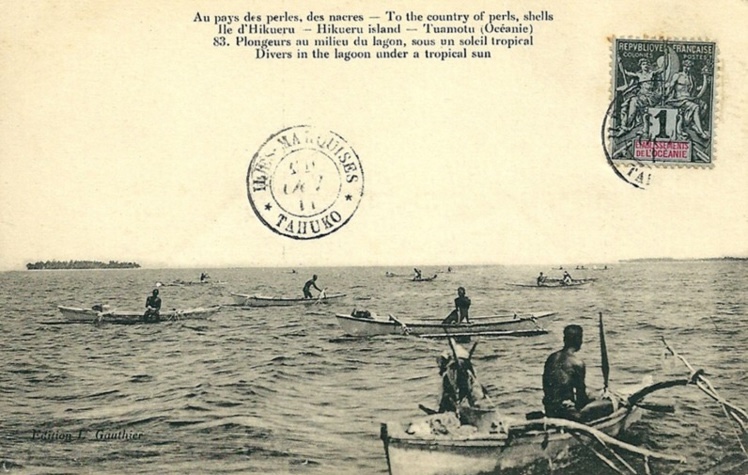 Au pays des perles, des nacres — To the country of perls, shells
Ile d'Hikueru — Hikueru island — Tuamotu (Océanie)
83. Plongeurs au milieu du lagon, sous un soleil tropical
Divers in the lagoon under a tropical sun
REPUBLIQUE FRANÇAISE
COLONIES POSTES
1
ETABLISSEMENTS
DE L'OCÉANIE
ILES-MARQUISES
11
* TAHUKO *
TA
Edition F. Gauthier